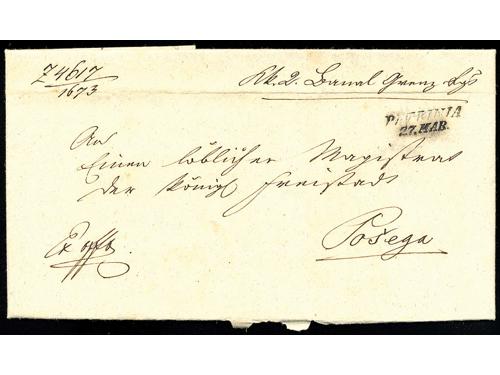 Z 4617
1673
KK. 2. Banal Grenz Rgs
PETRINIA
27. MAR.
An
Einen löblichen Magistrat
der königl Freistadt
Ex offo
Požega